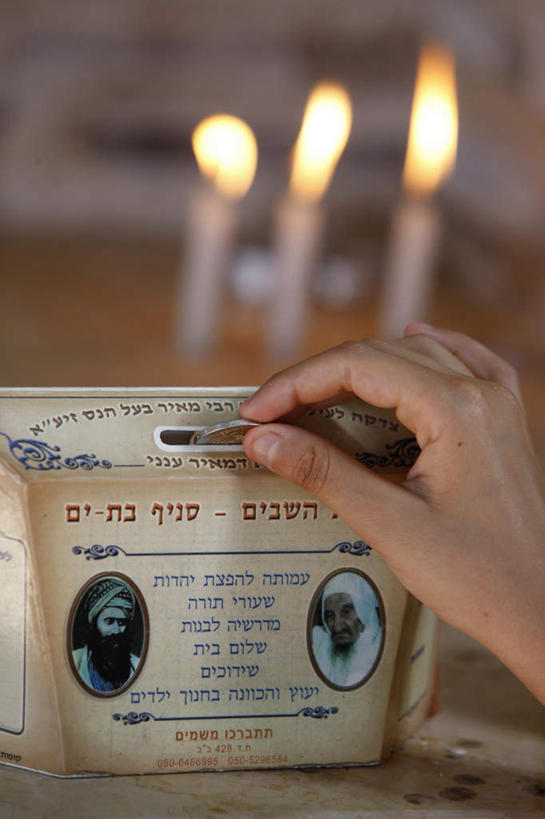 צדקה לעי רבי מאיר בעל הנס זיע״א
דמאיר ענני
השבים - סניף בת-ים
עמותה להפצת יהדות
שעורי תורה
מדרשיה לבנות
שלום בית
שידוכים
יעוץ והכוונה בחנוך ילדים
תתברכו משמים
ת.ד. 428 ב"ב
050-6486995 050-5296584